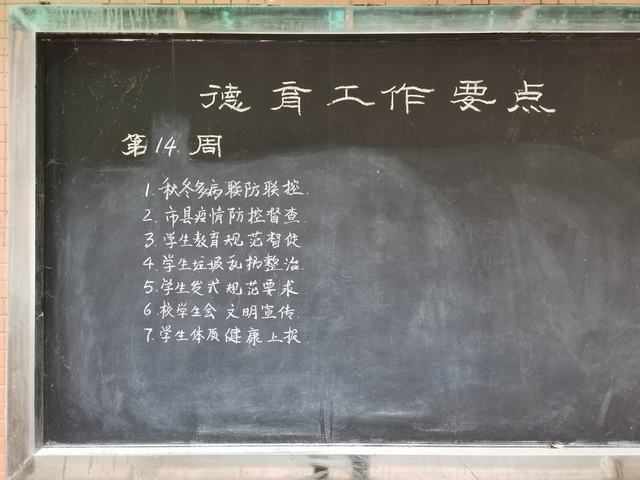 德育工作要点
第14.周
1.秋冬多病联防联控.
2.市县疫情防控督查
3.学生教育规范督促
4.学生垃圾乱扔整治.
5.学生发式规范要求
6.校学生会文明宣传.
7.学生体质健康上报.